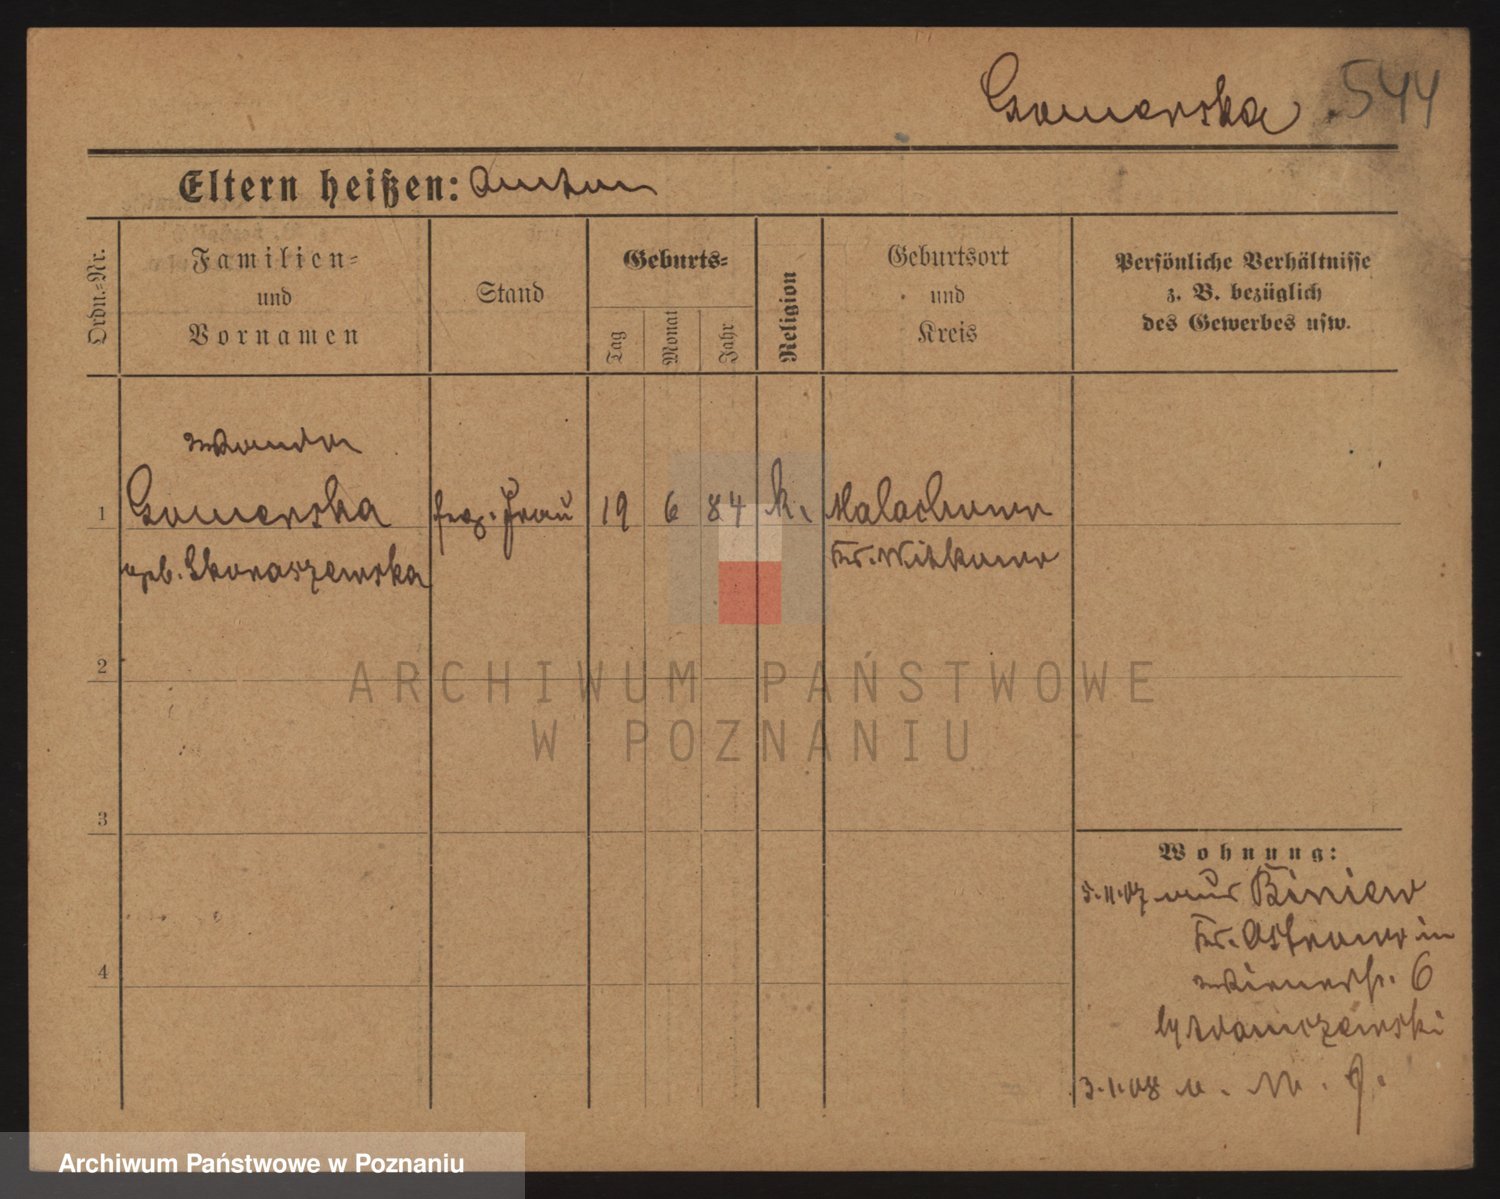 Gomerska 544
Eltern heißen: Anton
Ordn.-Nr.
Familien-
und
Vornamen
Stand
Geburts-
Tag
Monat
Jahr
Religion
Geburtsort
und
Kreis
Persönliche Verhältnisse
z. B. bezüglich
des Gewerbes usw.
Wanda
1 Gomerska Frau 19 6 84 k. Malachowo
geb. Skoraszewska Kr. Witkowo
2
3
4
Wohnung:
5.11.07 aus Biniew
Kr. Ostrowo in
Wienerstr. 6
b/ Adamczewski
3.1.08 n.
ARCHIWUM PAŃSTWOWE
W POZNANIU
Archiwum Państwowe w Poznaniu